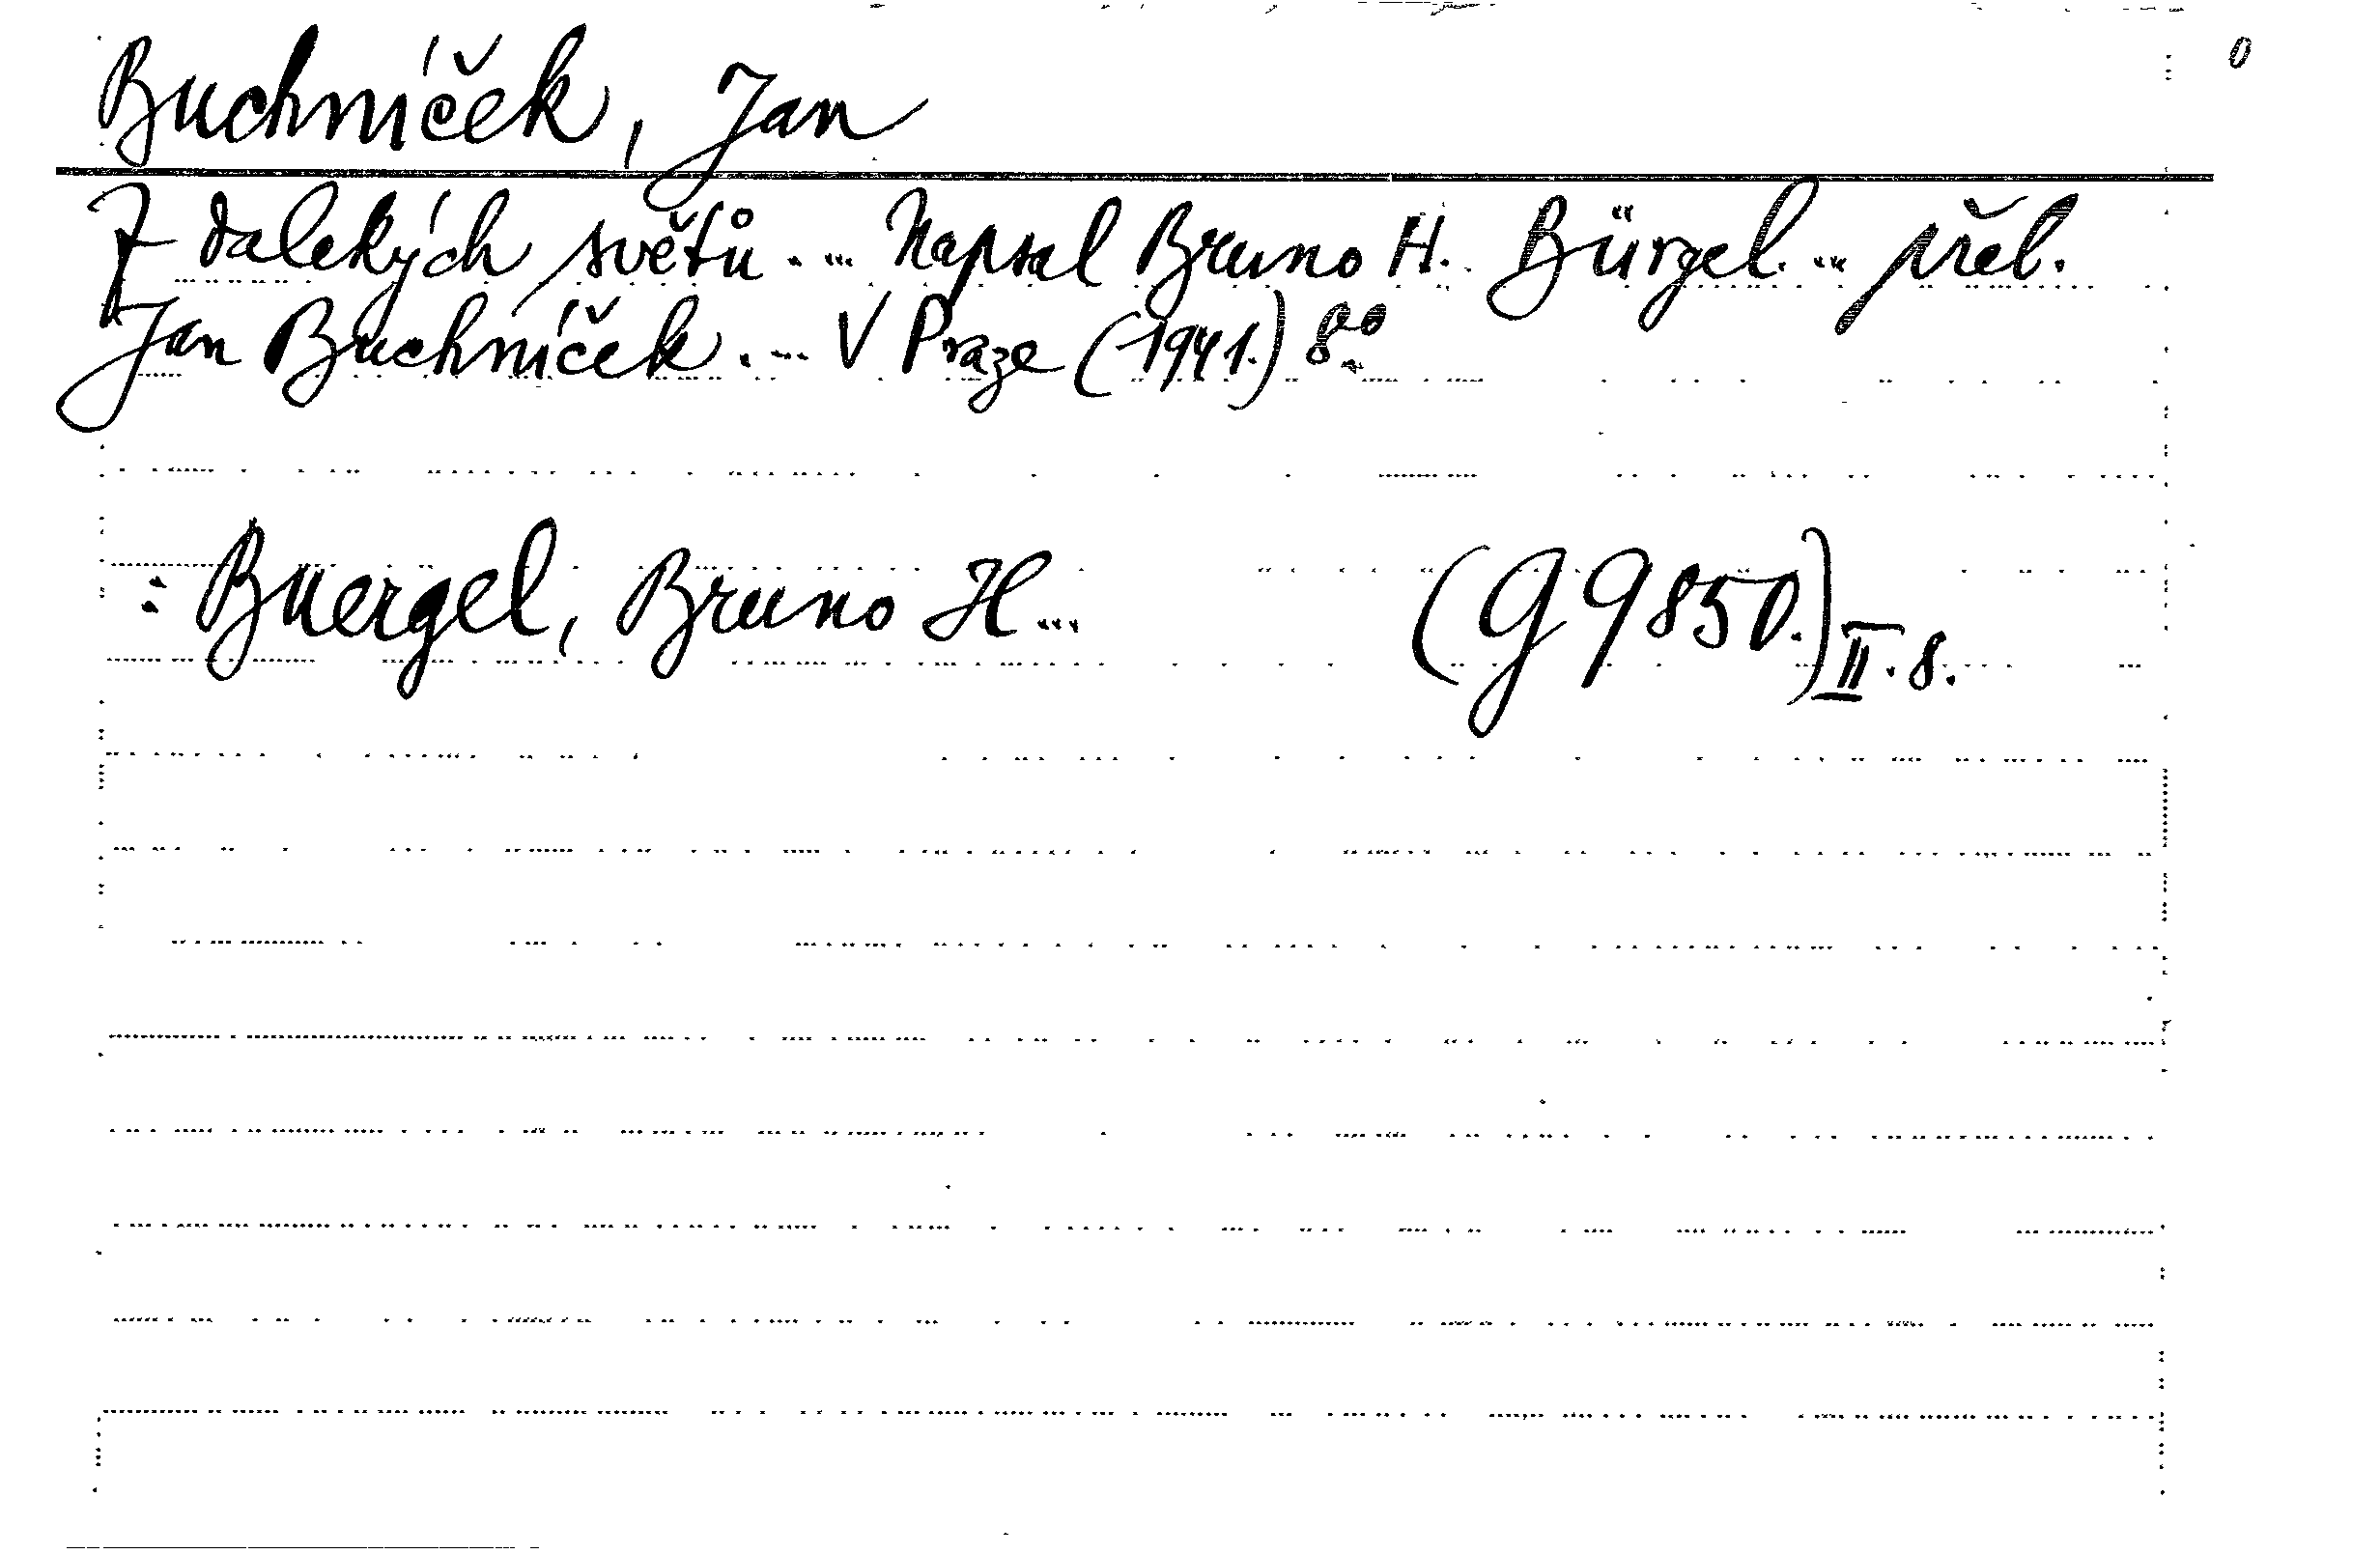 Buchníček, Jan
Z dalekých světů. ... Napsal Bruno H. Bürgel. ... přel.
Jan Buchníček. ... V Praze (1941.) 8°
: Buergel, Bruno H...
(G 9850.) II. 8.